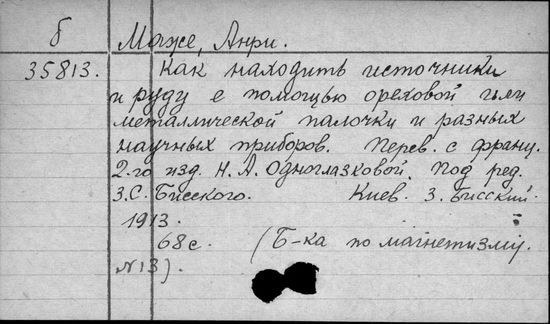 б Маже, Анри.
35813. Как находить источники
и руду с помощью ореховой или
металлической палочки и разных
научных приборов. Перев. с франц.
2-го изд. Н. А. Одноглазковой. Под ред.
З.С. Бисского. Киев. З. Бисский.
1913.
68с. (Б-ка по магнетизму.
N13).